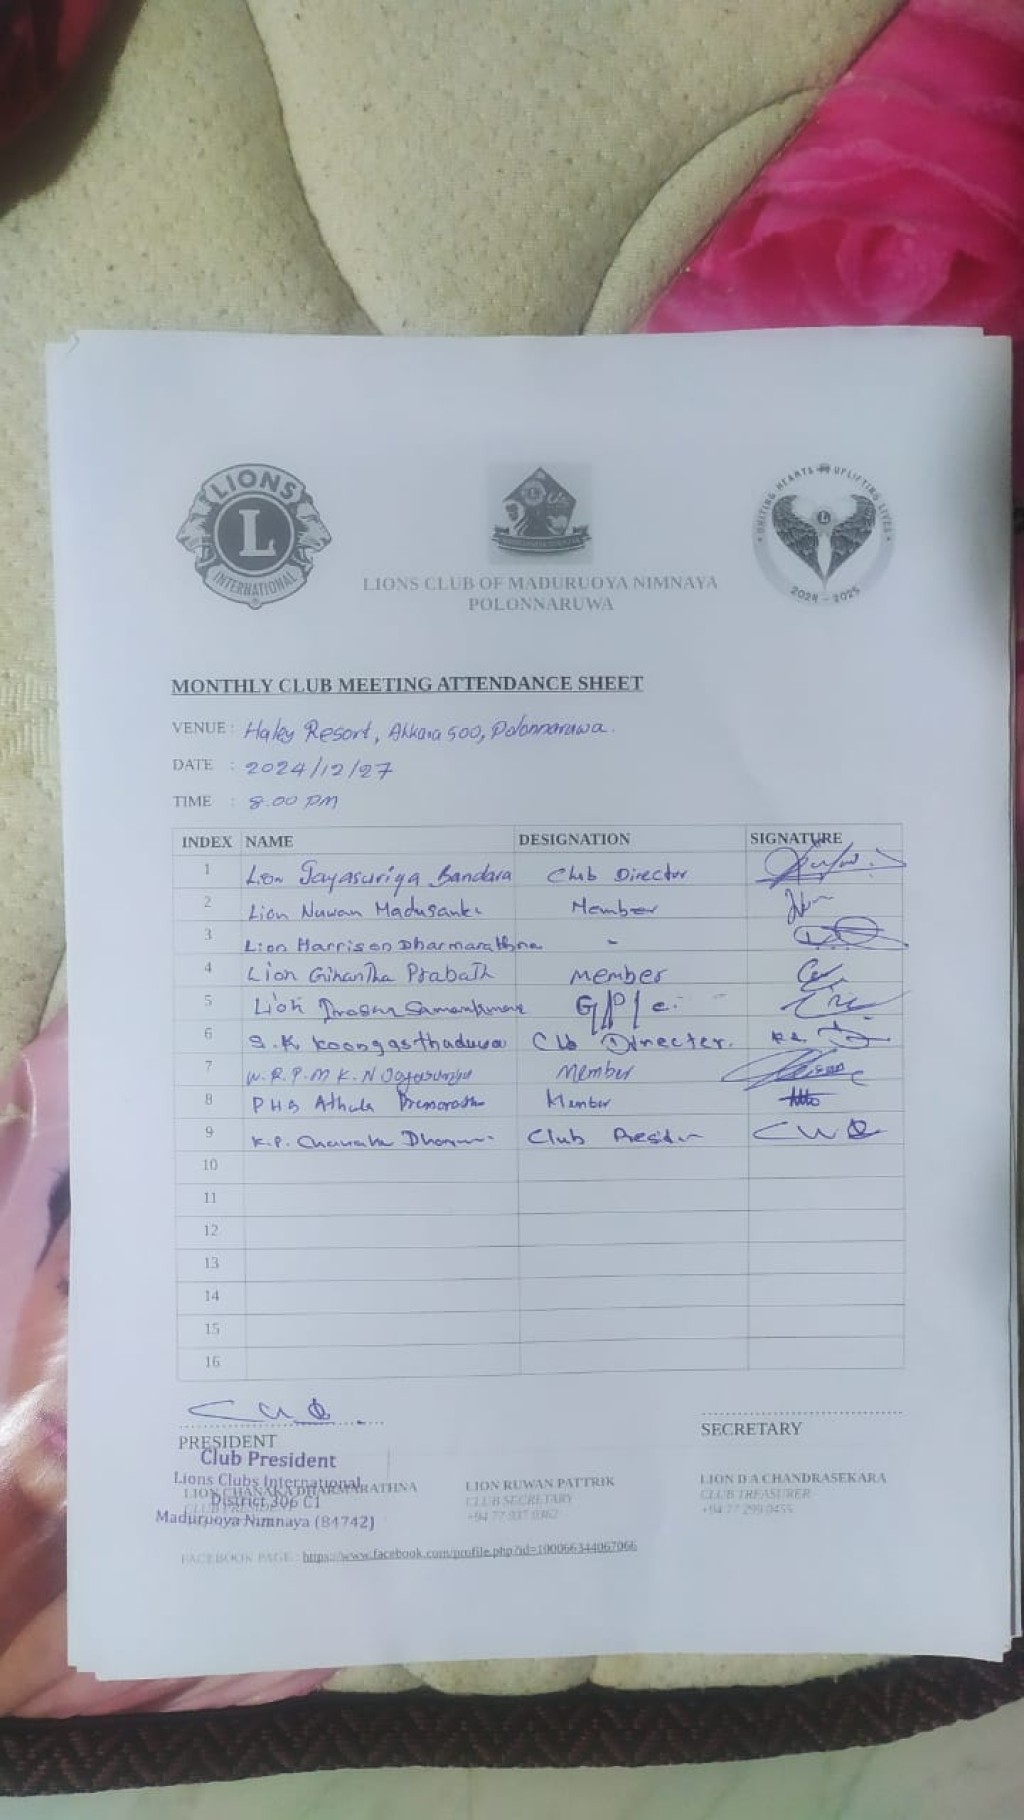 LIONS
L
INTERNATIONAL
UNITING HEARTS UPLIFTING LIVES
2024 - 2025
LIONS CLUB OF MADURUOYA NIMNAYA
POLONNARUWA
MONTHLY CLUB MEETING ATTENDANCE SHEET
VENUE : Haley Resort, Akkara 500, Polonnaruwa.
DATE : 2024/12/27
TIME : 8.00 PM
INDEX NAME DESIGNATION SIGNATURE
1 Lion Jayasuriya Bandara Club Director
2 Lion Nuwan Madusanka Member
3 Lion Harrison Dharmarathna -
4 Lion Gihantha Prabath Member
5 Lion G/P/
6 S.K Koongasthaduwa Club Directer.
7 W.R.P.M K.N Jayasuriya Member
8 PHB Athula Member
9 K.P. Chanaka Club
10
11
12
13
14
15
16
PRESIDENT SECRETARY
Club President
Lions Clubs International
District 306 C1
Maduruoya Nimnaya (84742)
LION CHANAKA DHARMARATHNA LION RUWAN PATTRIK LION D A CHANDRASEKARA
CLUB PRESIDENT CLUB SECRETARY CLUB TREASURER
+94 77 937 0362 +94 77 299 0455
FACEBOOK PAGE : https://www.facebook.com/profile.php?id=100066344067066